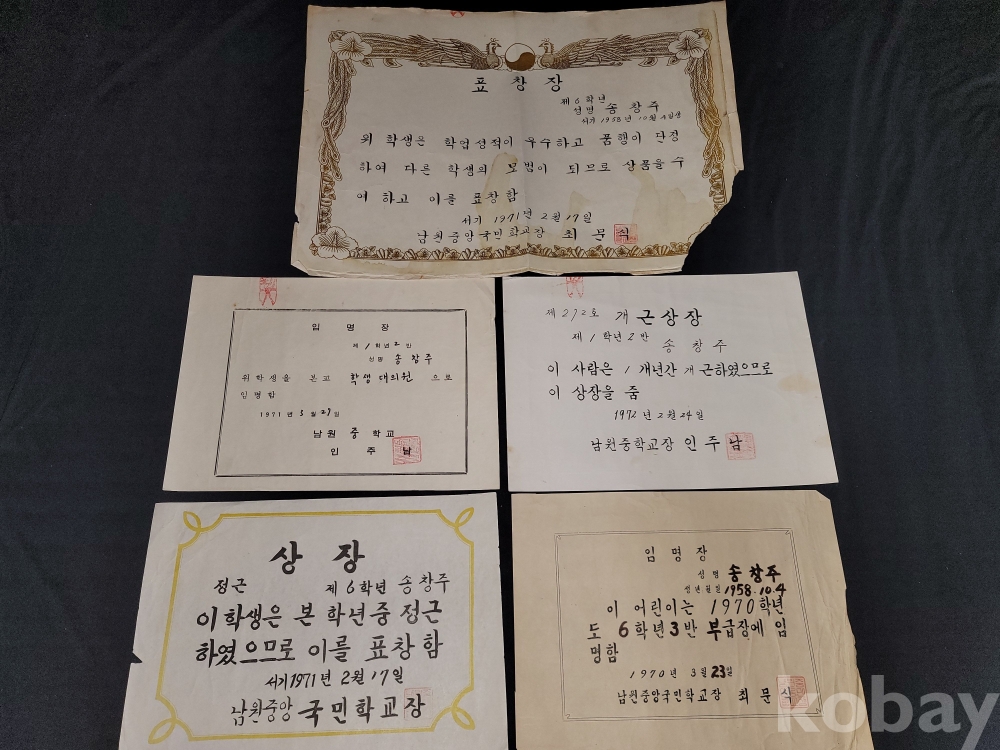 표창장
제6학년
성명 송창주
서기 1958년 10월 4일생
위 학생은 학업성적이 우수하고 품행이 단정
하여 다른 학생의 모범이 되므로 상품을 수
여 하고 이를 표창함
서기 1971년 2월 17일
남원중앙국민학교장 최문식
임명장
제1학년2반
성명 송창주
위학생을 본교 학생대의원 으로
임명함
1971년 3월 27일
남원중학교
인주남
제272호 개근상장
제1학년2반 송창주
이 사람은 1개년간 개근하였으므로
이 상장을 줌
1972년 2월 24일
남원중학교장 인주남
상장
정근 제6학년 송창주
이학생은 본 학년중 정근
하였으므로 이를 표창함
서기1971년 2월 17일
남원중앙국민학교장
임명장
성명 송창주
생년월일 1958.10.4
이 어린이는 1970학년
도 6학년3반 부급장에 임
명함
1970년 3월 23일
남원중앙국민학교장 최문식
kobay